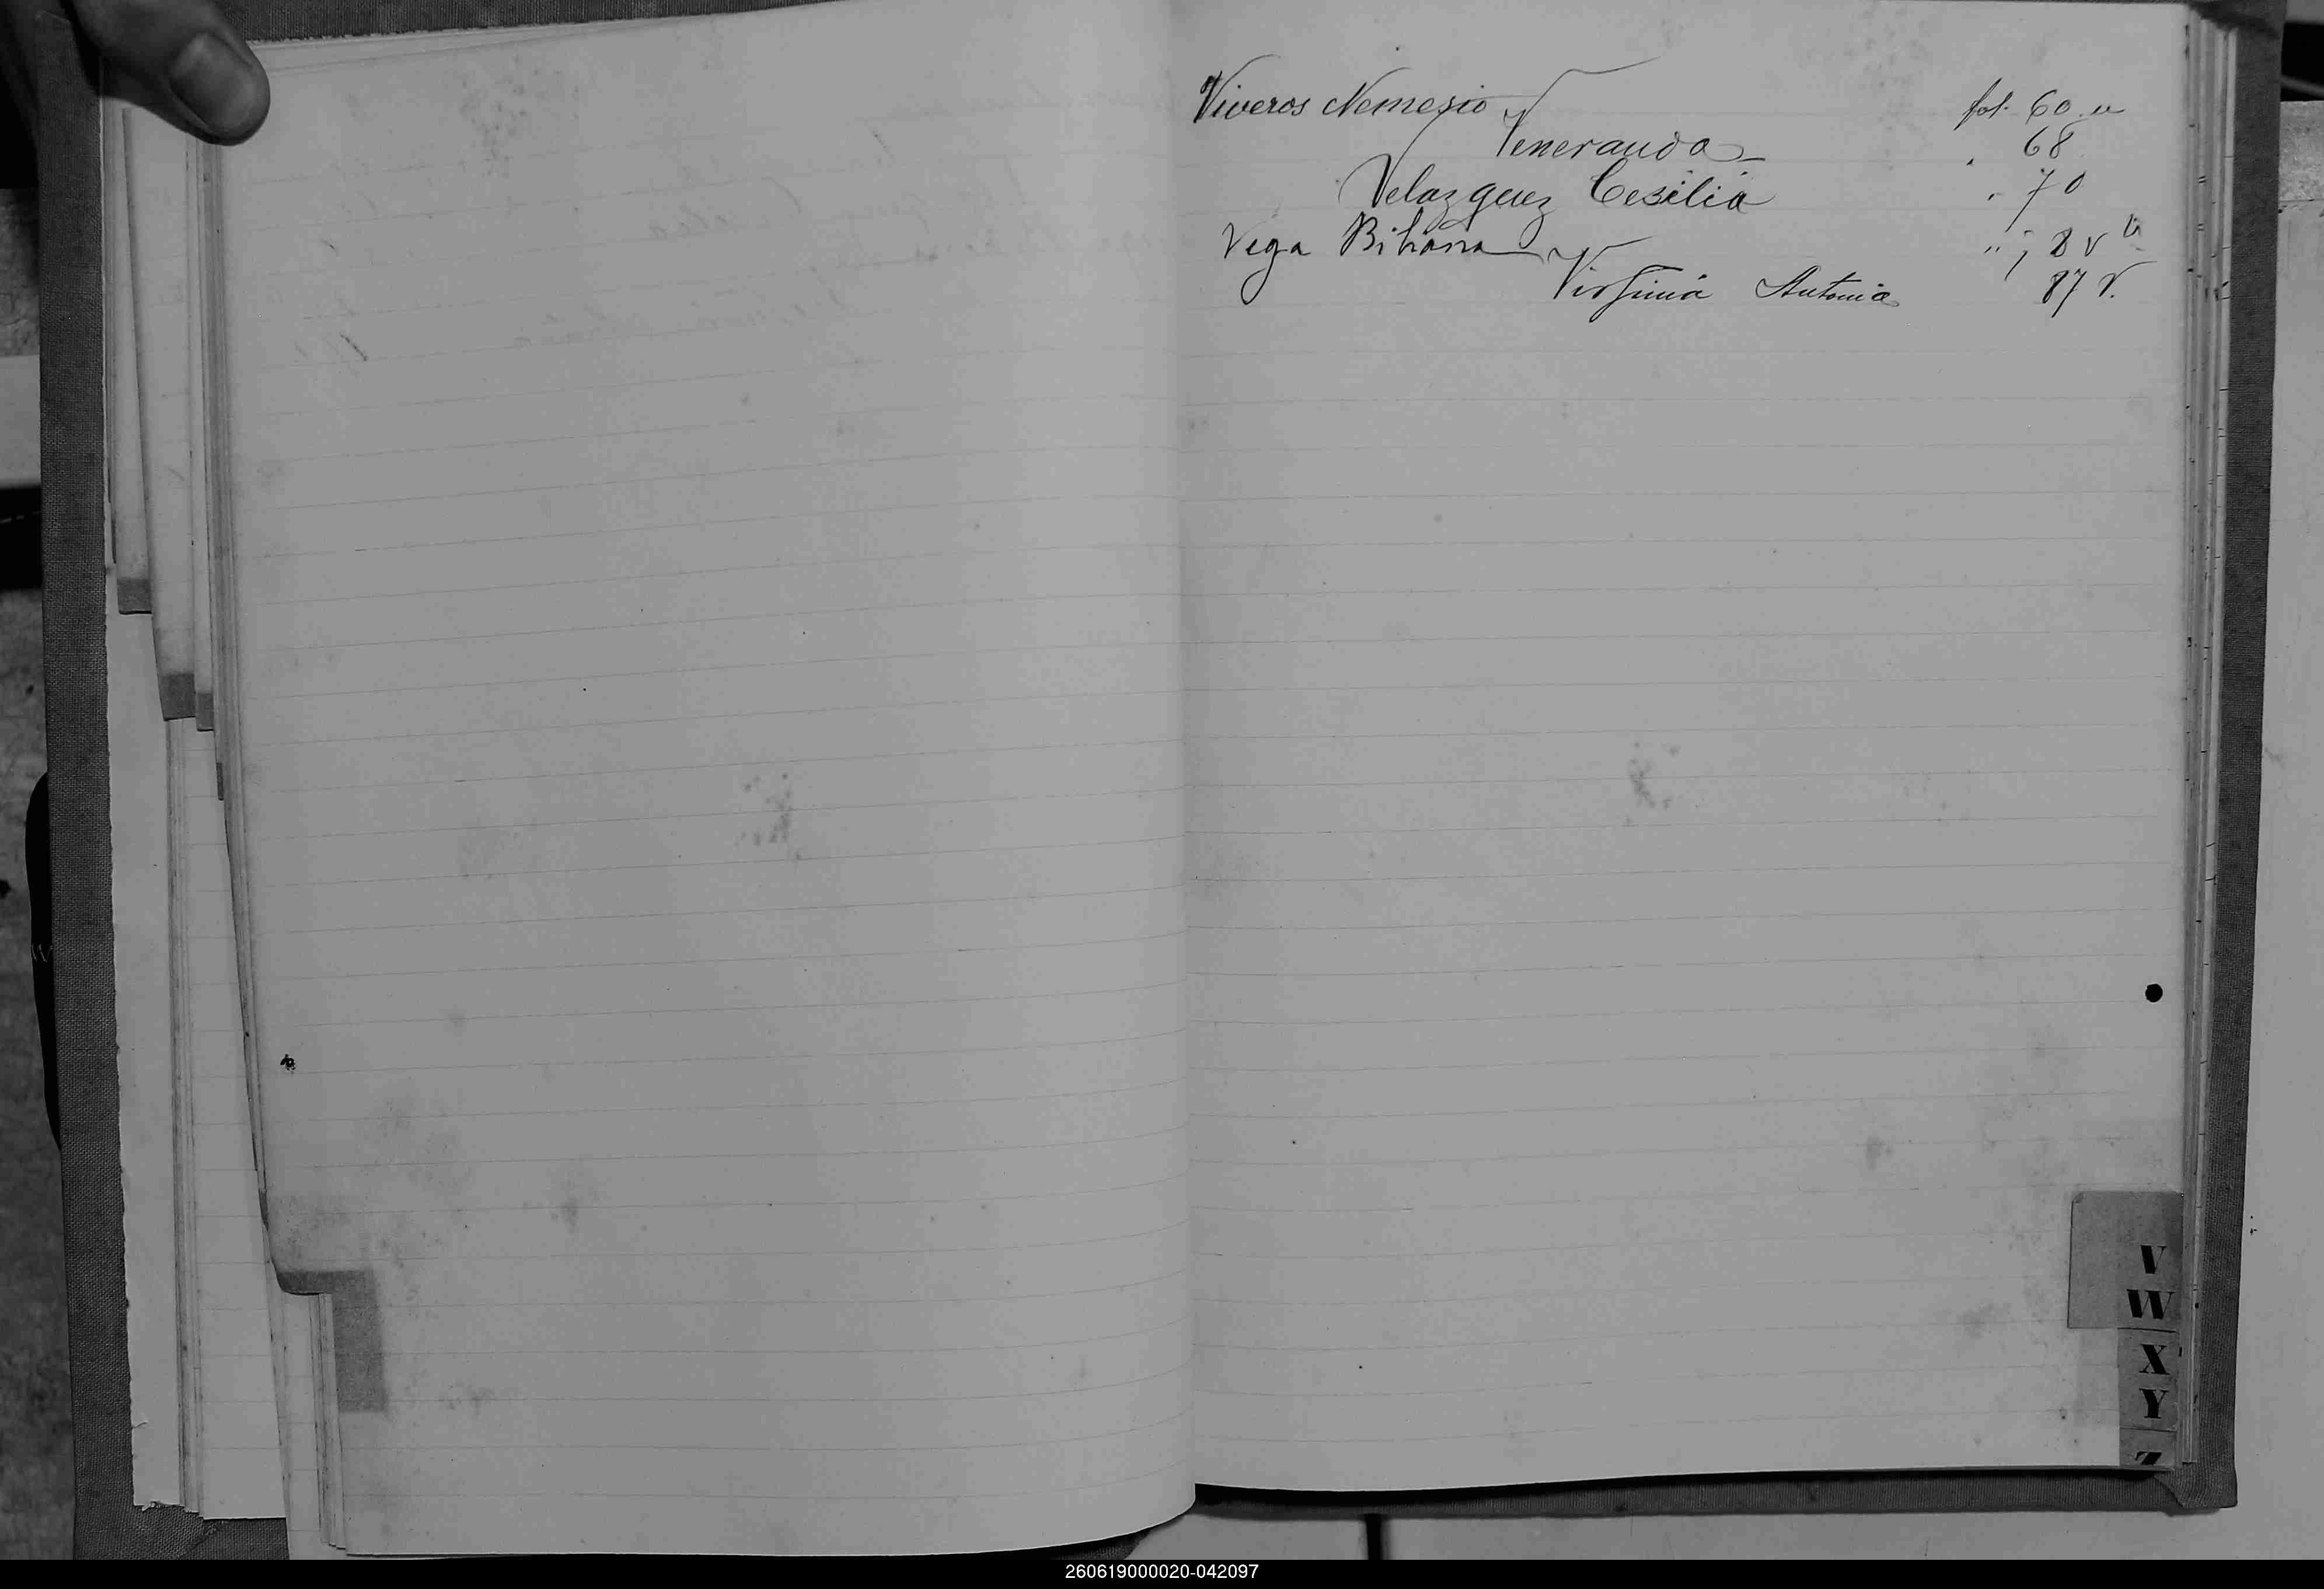 Viveros Nemesio fol. 60. v
Veneranda 68
Velazquez Cesilia 70
Vega Bibiana
Virginia Antonia 87 v.
V
W
X
Y
Z
260619000020-042097